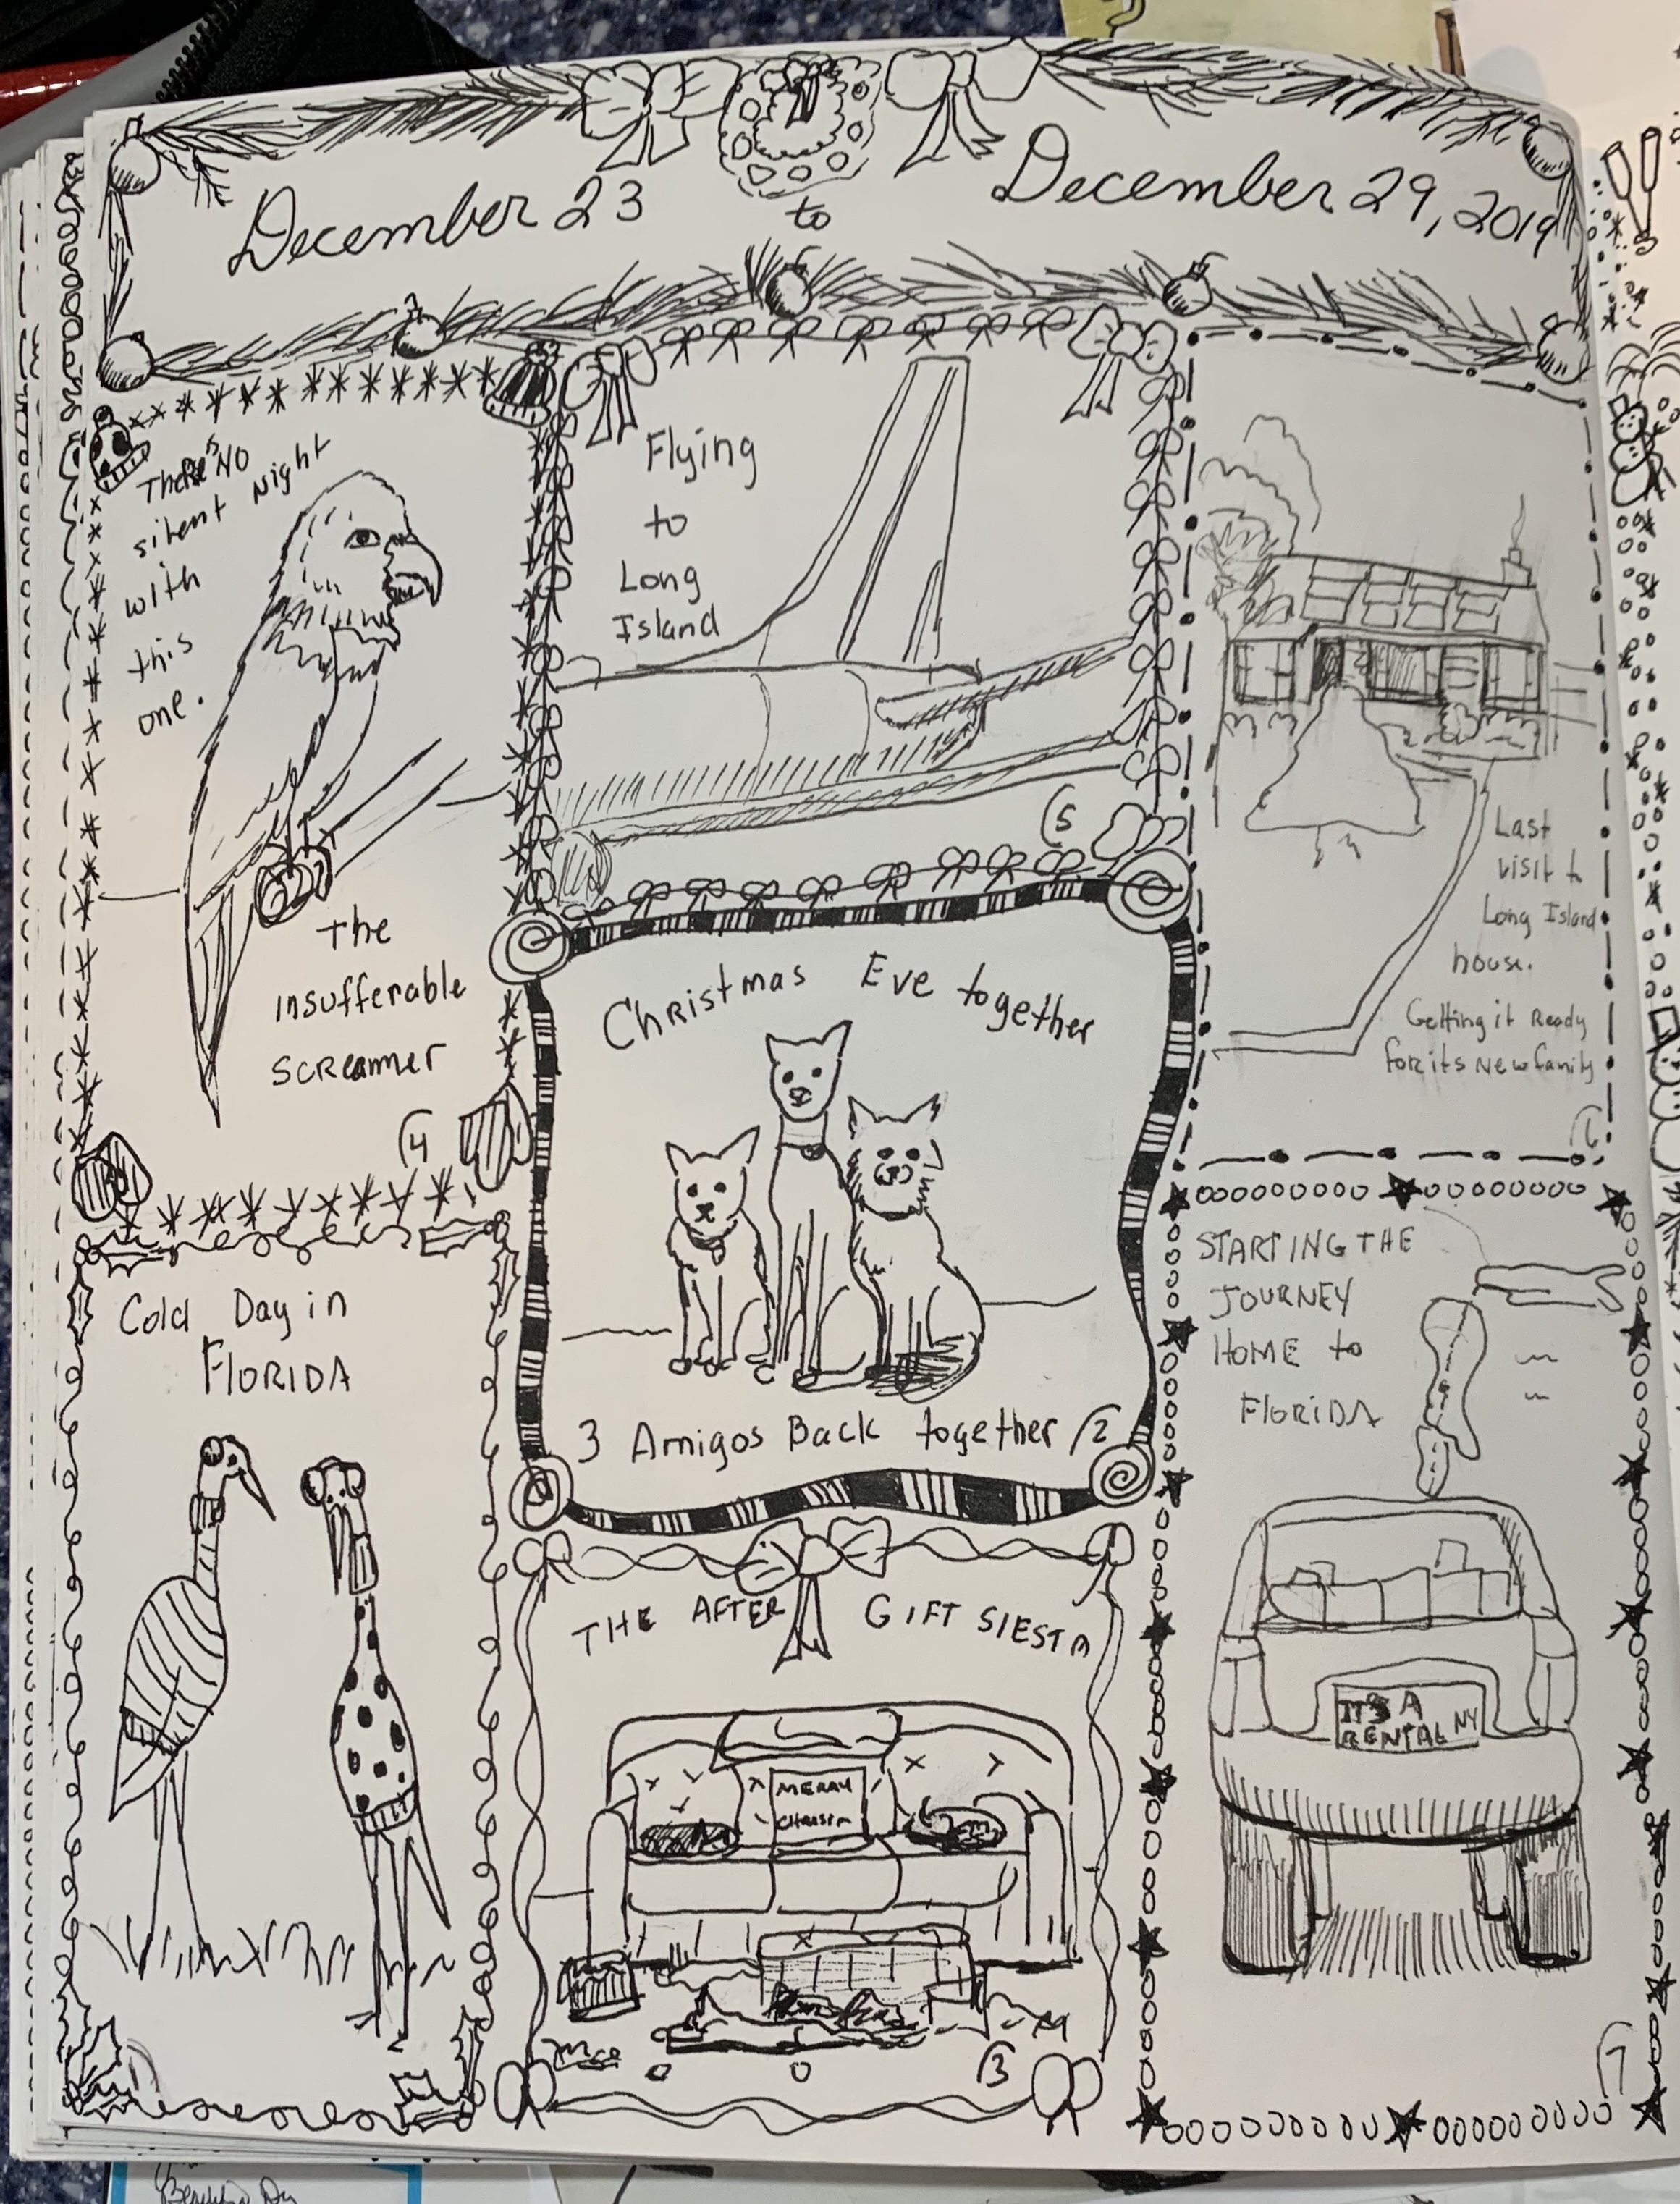 December 23
to
December 29, 2019
There's NO
silent Night
with
this
one.
The
insufferable
SCReammer
4
Flying
to
Long
Island
5
Last
visit to
Long Island
house.
Getting it Ready
for its New family
Christmas Eve together
3 Amigos Back together
2
Cold Day in
FLORIDA
THE AFTER GIFT SIESTA
MERRY
3
STARTING THE
JOURNEY
HOME to
FLORIDA
IT'S A
RENTAL NY
7